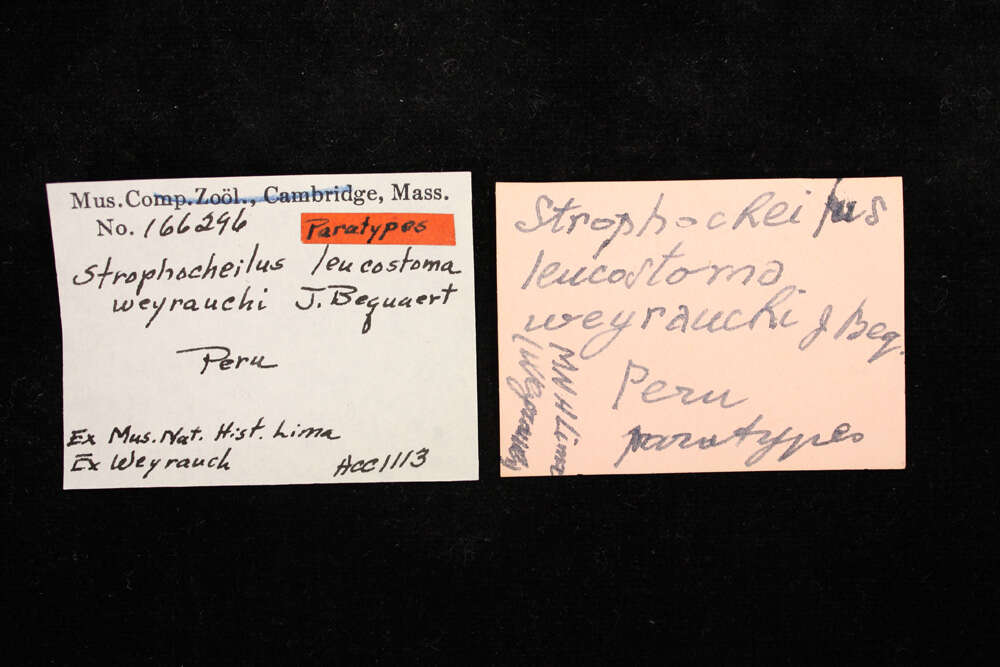 Mus. Comp. Zoöl., Cambridge, Mass.
No. 166296 Paratypes
Strophocheilus leucostoma
weyrauchi J. Bequaert
Peru
Ex Mus. Nat. Hist. Lima
Ex Weyrauch Acc 1113
Strophocheilus
leucostoma
weyrauchi J Beq.
Peru
paratypes
MNH Lima